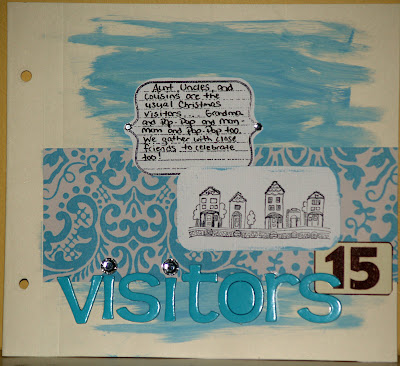 Aunt, Uncles, and
Cousins are the
usual Christmas
visitors.... Grandma
and Pop-Pop and Mom-
mom and Pop-Pop too.
We gather with close
friends to celebrate
too!
15
visitors